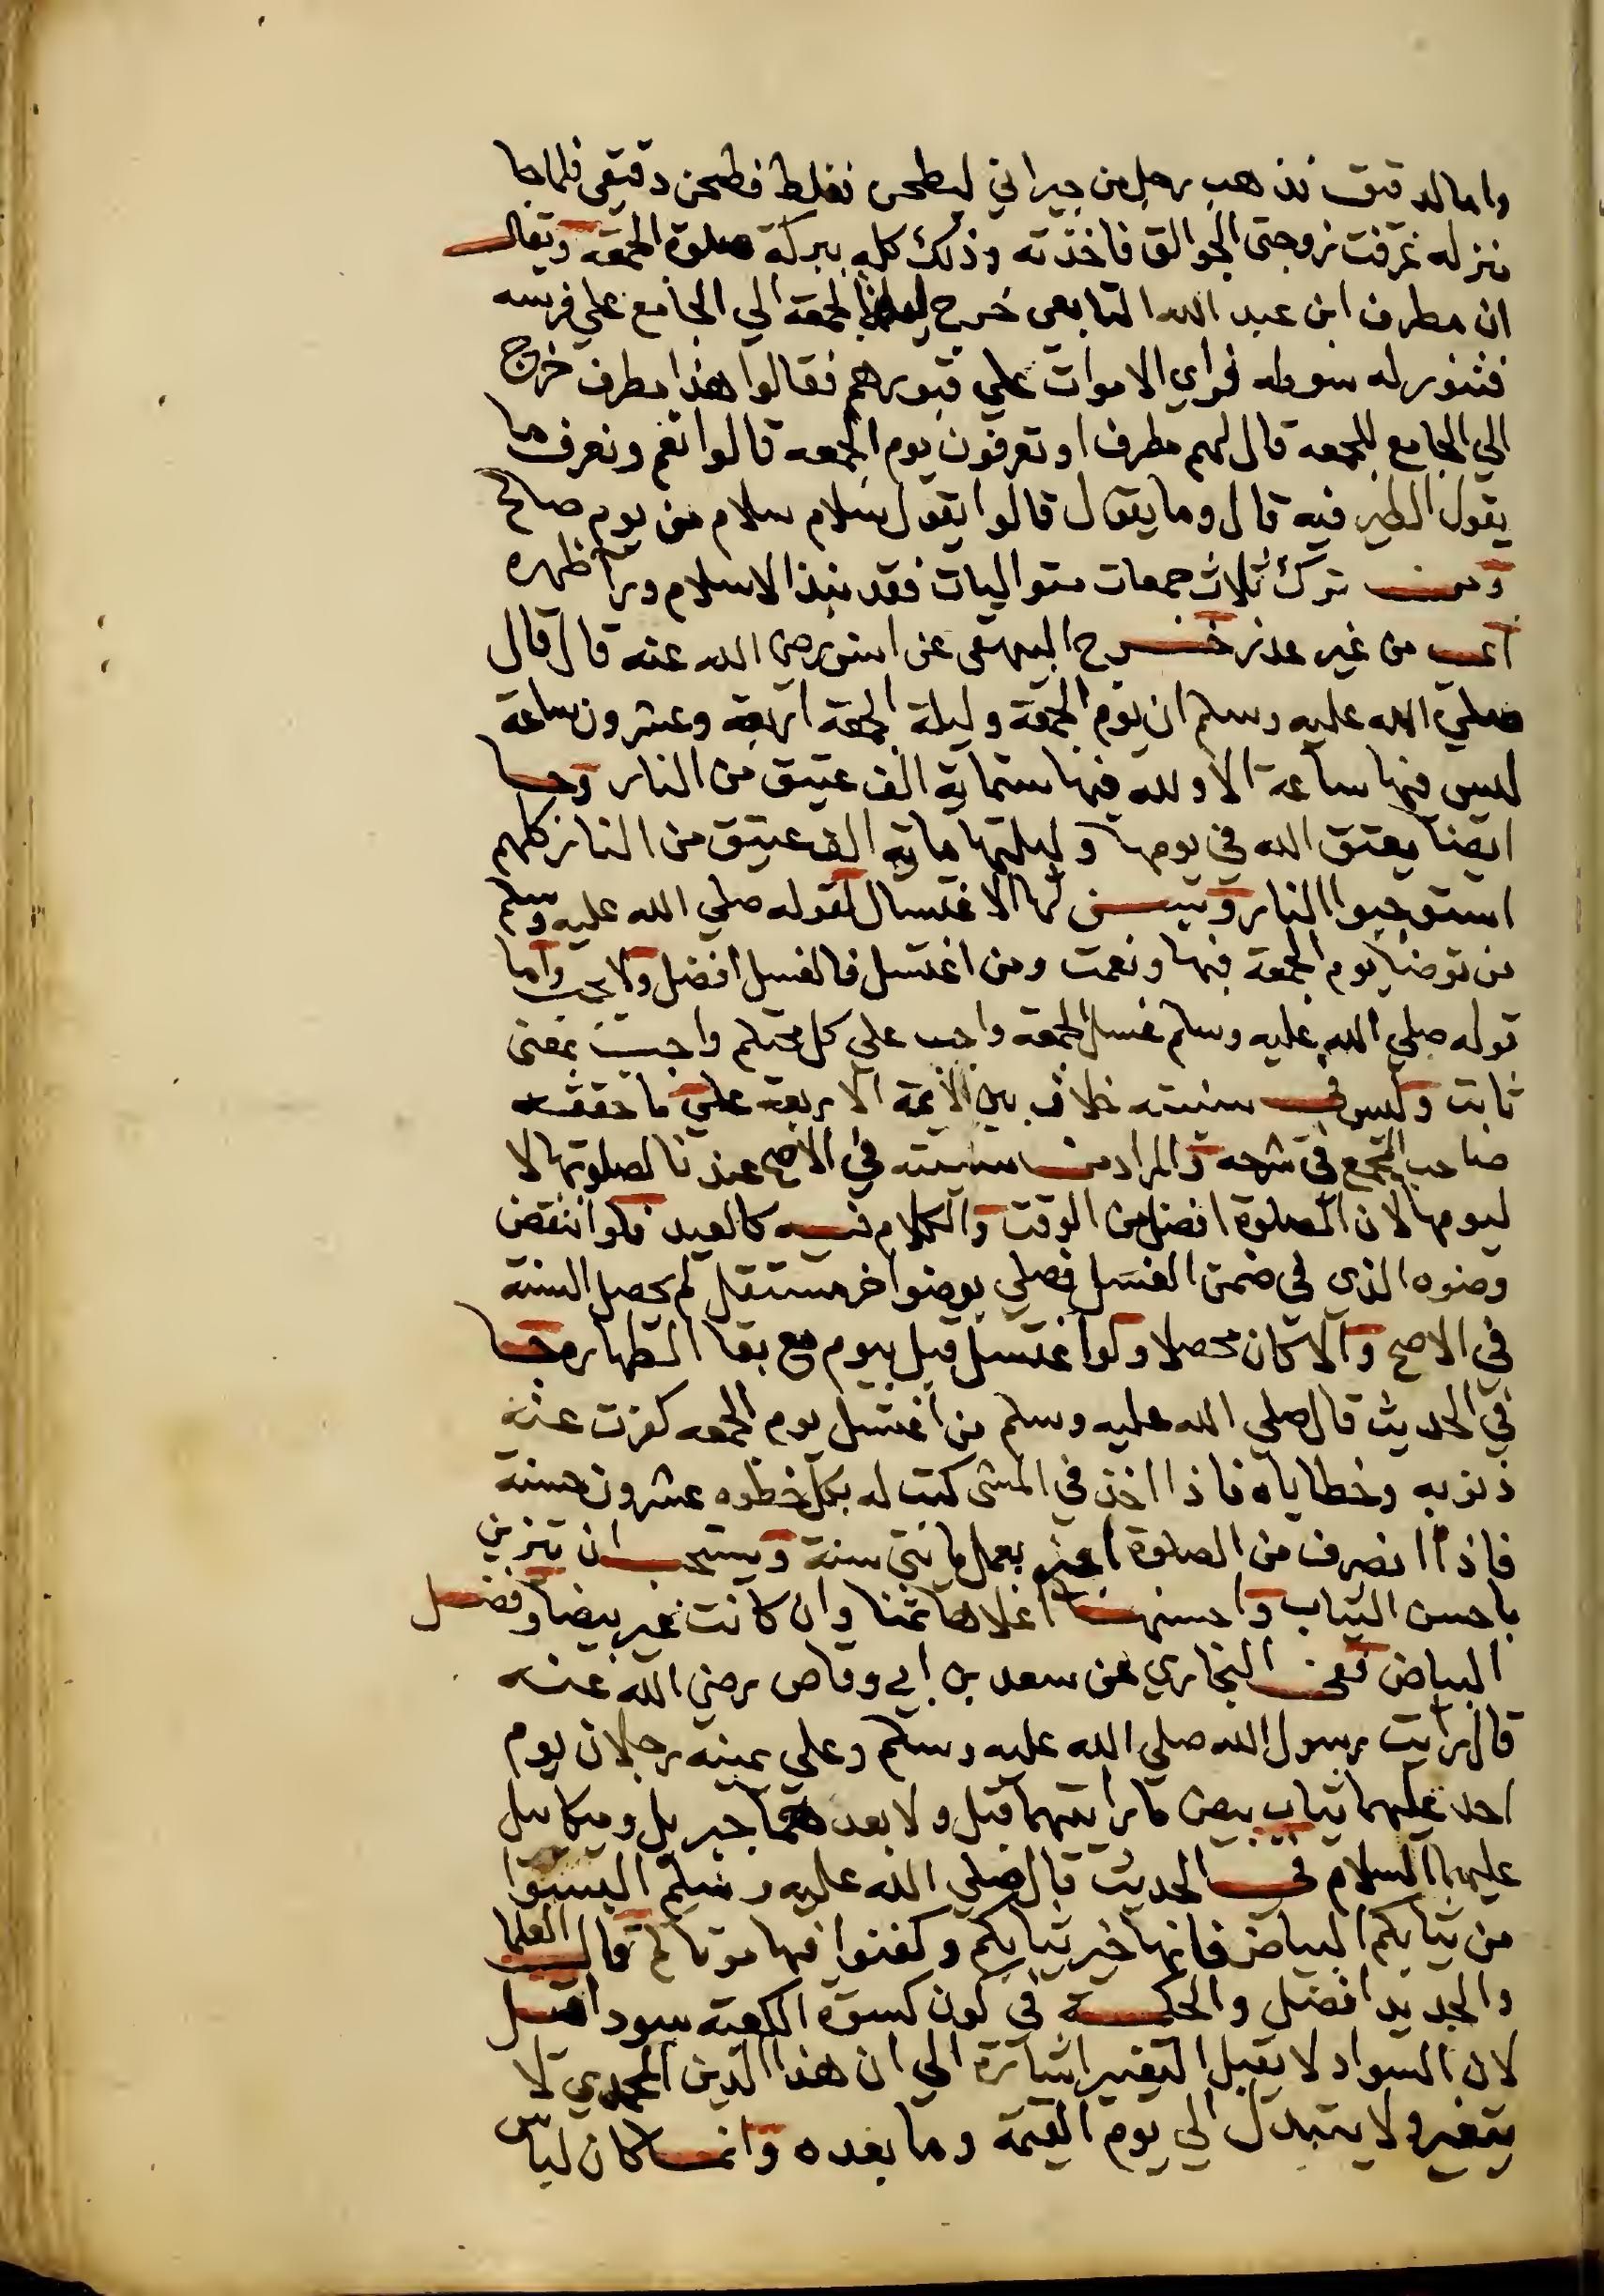 واما الدقيق فذهب رجل من جيراني ليطحن فغلط فطحن دقيقي فلما جا
منزله عرفت زوجتي الجوالق فاخذته وذلك كله ببركة صلوة الجمعة ويقال
ان مطرف ابن عبد الله التابعي خرج ليلة الجمعة الي الجامع علي فرسه
فتنور له سوطه فراي الاموات علي قبورهم فقالوا هذا مطرف خرج
الي الجامع للجمعه قال لهم مطرف او تعرفون يوم الجمعه قالوا نعم ونعرف ما
يقول الطير فيه قال وما يقول قالوا يقول سلام سلام من يوم صالح
ومن ترك ثلاث جمعات متواليات فقد نبذ الاسلام ورآ ظهره
اي من غير عذر خرج البيهقي عن انس رضي الله عنه قال قال
صلي الله عليه وسلم ان يوم الجمعة وليلة الجمعة اربعة وعشرون ساعة
ليس فيها ساعة الا ولله فيها ستماية الف عتيق من النار وجا
ايضا يعتق الله في يومها وليلتها ماية الف عتيق من النار كلهم
استوجبوا النار ويسن لها الاغتسال لقوله صلي الله عليه وسلم
من توضا يوم الجمعة فبها ونعمت ومن اغتسل فالغسل افضل ولا يجب واما
قوله صلي الله عليه وسلم غسل الجمعة واجب علي كل محتلم واجب بمعني
ثابت وليس في سنيته خلاف بين الايمة الاربعة علي ما حققه
صاحب المجمع في شرحه والمراد من سنيته في الاصح عندنا لصلوتها لا
ليومها لان الصلوة افضل من الوقت والكلام فيه كالعيد فلو انتقض
وضوه الذي في ضمن الغسل فصلي بوضوا خر مستقل لم يحصل السنة
في الاصح والا كان محصلا ولو اغتسل قبل بيوم مع بقا الطهارة جا
في الحديث قال صلي الله عليه وسلم من اغتسل يوم الجمعه كفرت عنه
ذنوبه وخطاياه فاذا اخذ في المشي كتب له بكل خطوه عشرون حسنة
فاذا انصرف من الصلوة اجيز بعمل مايتي سنة ويستحب ان يتزين
باحسن الثياب واحسنها اغلاها ثمنا وان كانت غير بيضا وفضل
البياض فعن البخاري عن سعد بن ابي وقاص رضي الله عنه
قال رايت رسول الله صلي الله عليه وسلم وعلي يمينه رجلان يوم
احد عليهما ثياب بيض ما رايتهما قبل ولا بعد هما جبريل وميكاييل
عليهما السلام في الحديث قال صلي الله عليه وسلم البسوا
من ثيابكم البياض فانها خير ثيابكم وكفنوا فيها موتاكم قال العلما
والجديد افضل والحكمة في كون كسوة الكعبة سودا قيل
لان السواد لا يقبل التغير اشارة الي ان هذا الدين المحمدي لا
يتغير ولا يتبدل الي يوم القيمة وما بعده وانما كان لباس